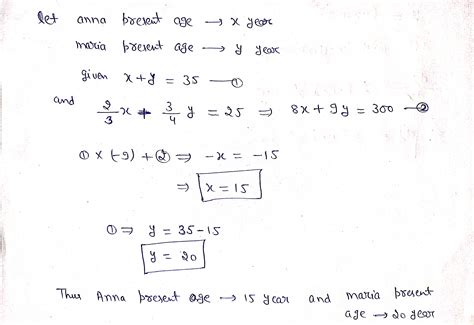 let anna present age → x year
maria present age → y year
given x+y = 35 —①
and 2/3 x + 3/4 y = 25 ⇒ 8x + 9y = 300 —②
① x (-9) + ② ⇒ -x = -15
⇒ x = 15
① ⇒ y = 35-15
y = 20
Thus Anna present age → 15 year and maria present
age → 20 year